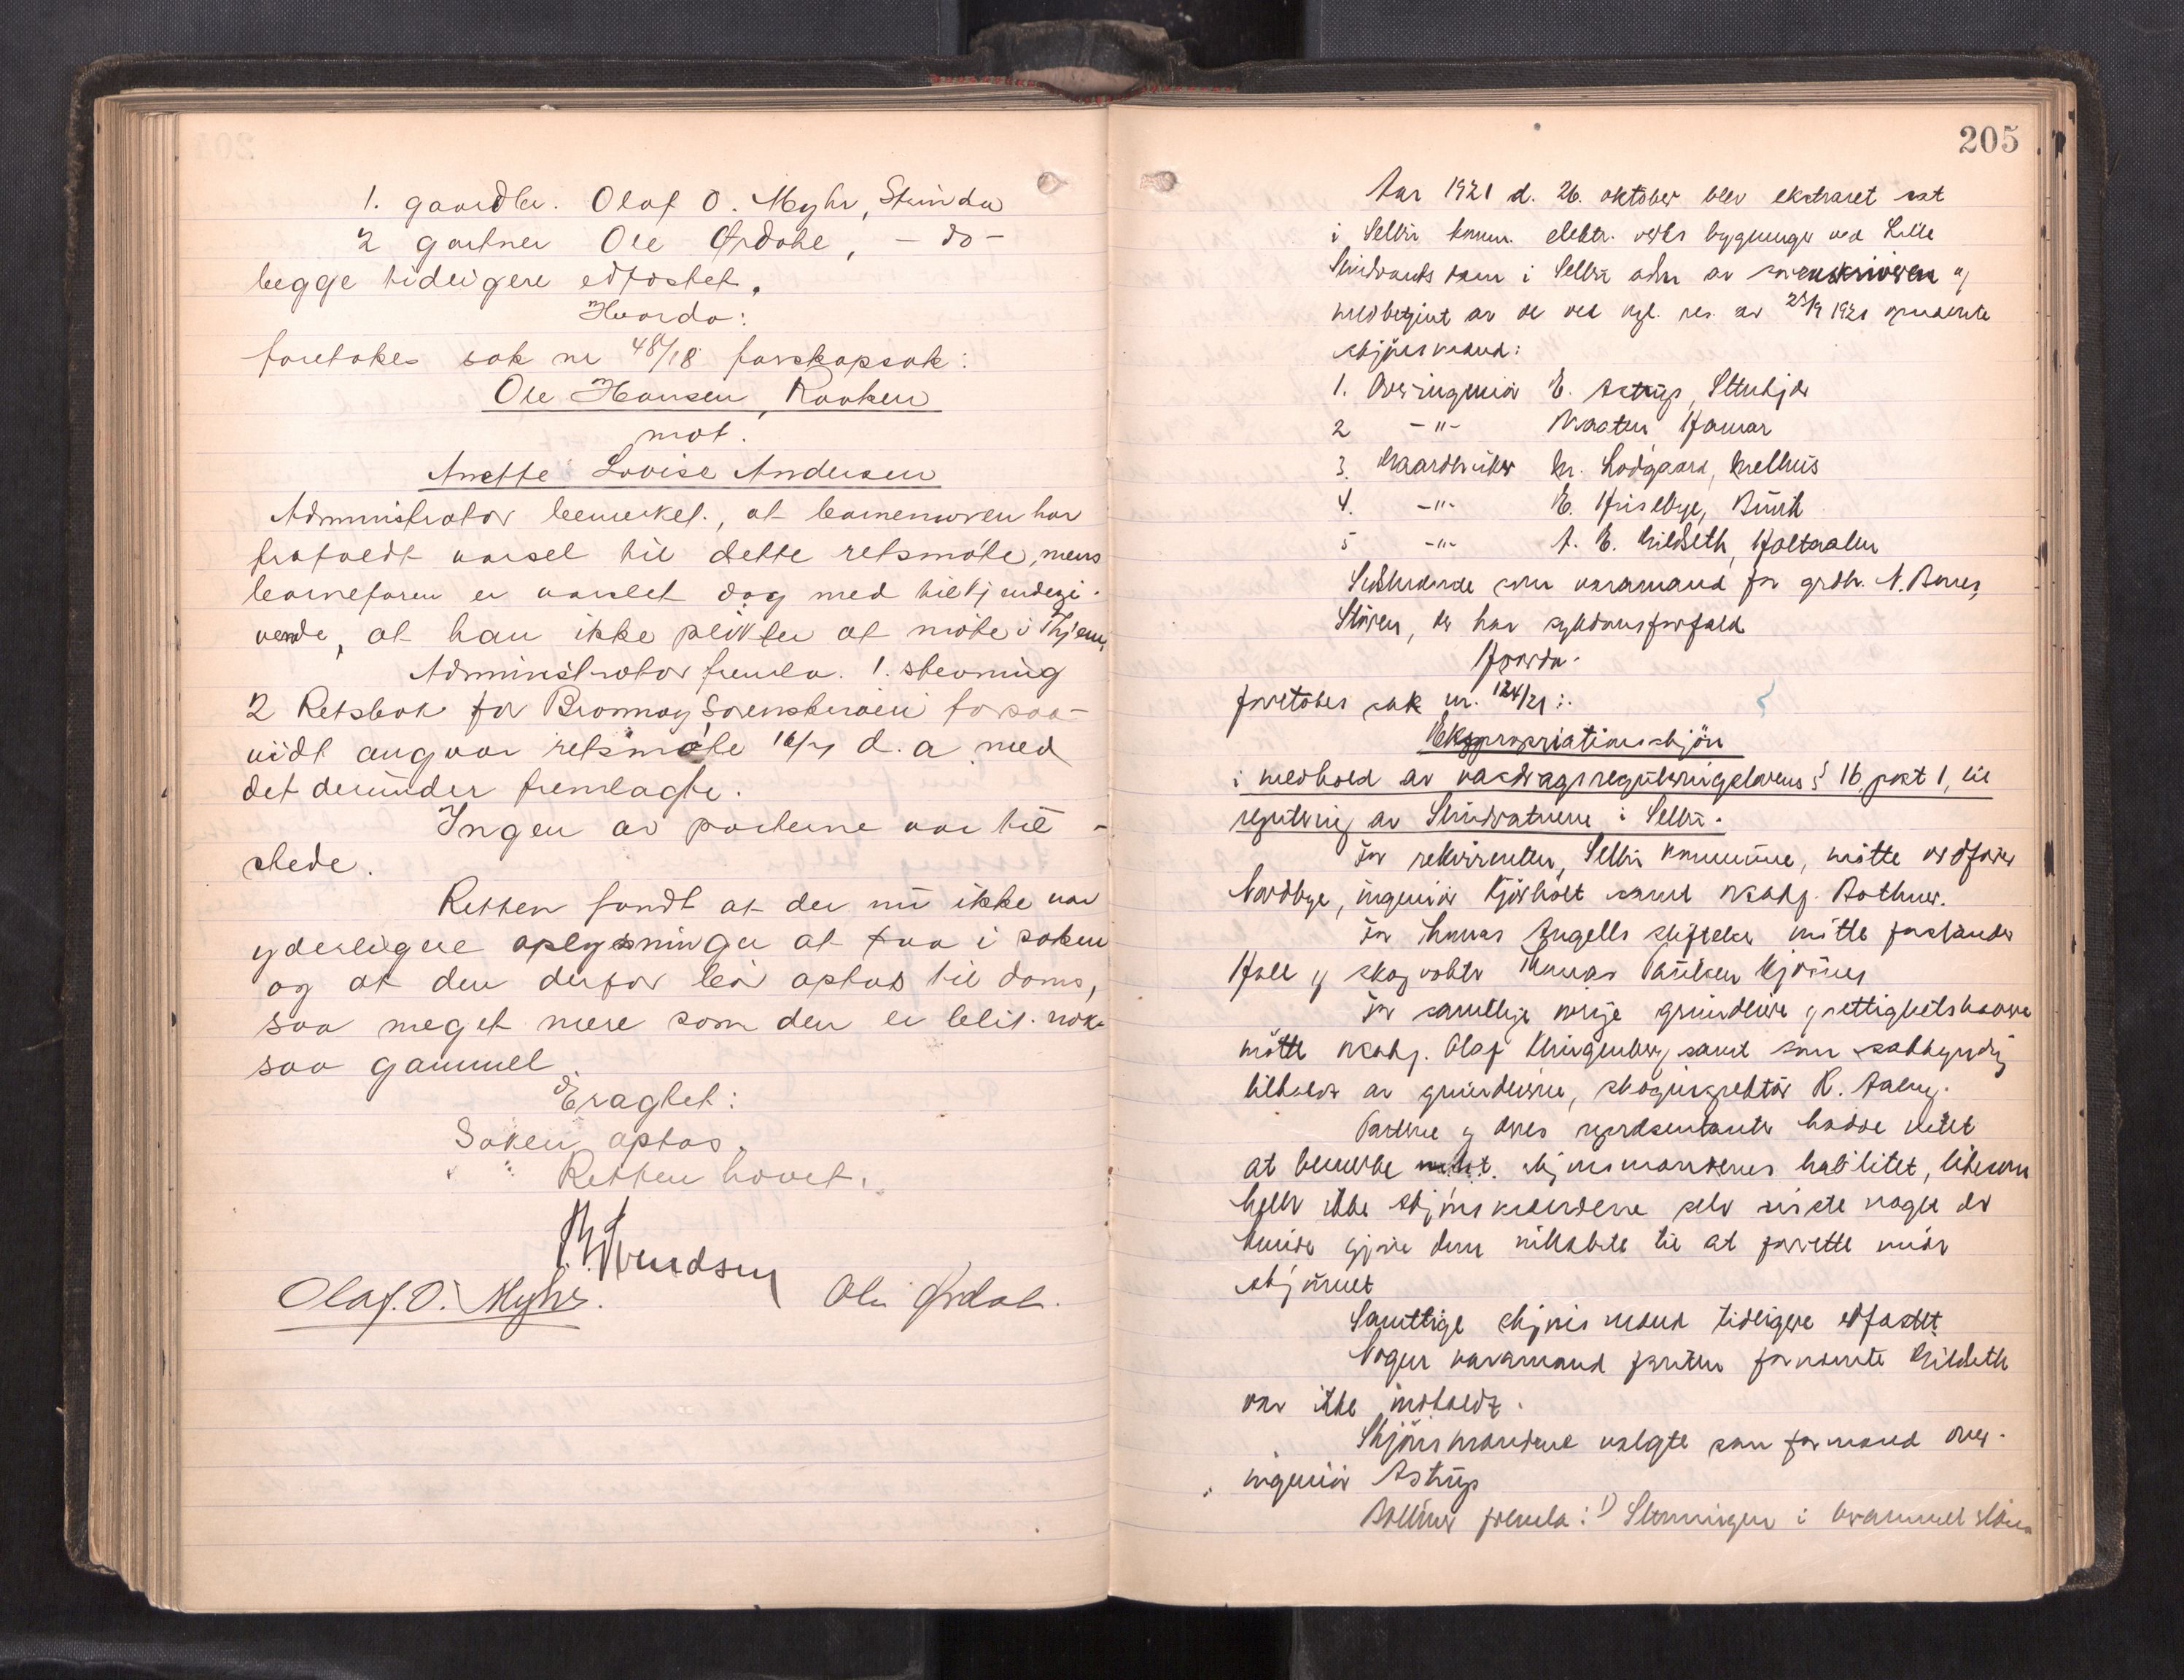 1. gaardbr. Olaf O. Myhr, Strinda
2 gartner Ole Ørdahl, - do -
begge tidligere edfæstet.
Hvorda:
foretokes sak nr 48/18 farskapsak:
Ole Hansen,
mot.
Anette Lovise Andersen
Administrator bemerket, at barnemoren har
frafaldt varsel til dette retsmöte, mens
barnefaren er varslet dog med tilkjendegi-
vende, at han ikke plikter at möte i
Administrator fremla. 1. stevning
2 Retsbok for Brønnøy Sorenskriveri forsaa-
vidt angaar retsmöte d. a. med
det derunder fremlagte.
Ingen av parterne var til-
stede.
Retten fandt at der nu ikke var
yderligere oplysninger at faa i saken
og at den derfor bör optas til doms,
saa meget mere som den er blit nok-
saa gammel
Eragtet:
Saken optas.
Retten hævet.
Olaf. O. Myhr. Ole Ørdal.
205
Aar 1921 d. 26. oktober blev ekstraret sat
i Selbu komm. elektr. verks bygninger ved Lille
dam i Selbu adm av sorenskriveren og
medbetjent av de ved kgl. res. av 23/9 1921 opnævnte
skjönsmænd:
1. Overingeniör E. Astrup,
2 -"- Hamar
3. Gaardbruker Lodgaard, Melhus
4. -"- E.
5 -"- A. E. Kildseth, Holtaalen
Sidstnævnte som varamand for grdbr. N.
Stören, der har sykdomsforfald
Hvorda.
foretokes sak nr. 124/21:
Ekspropriationsskjön
i medhold av vasdragsreguleringslovens § 16, pkt 1, til
regulering av i Selbu.
For rekvirenten, Selbu kommune, mötte ordförer
Nordbye, ingeniör Kjörholt samt o.r.sakf.
For Thomas Angells stiftelser mötte forstander
Hall og skogvokter Thomas
For samtlige övrige grundeiere og rettighetshavere
mötte o.r.sakf. Olaf Klingenberg samt som sakkyndig
tilkaldt av grundeierne, skoginspektör K. Aaberg.
Parterne og deres repræsentanter hadde intet
at bemerke skjönsmændenes habilitet, likesom
heller ikke skjönsmændene selv visste noget der
kunde gjöre dem inhabile til at forrette under
skjönnet
Samtlige skjönsmænd tidligere edfæstet.
Nogen varamand foruten fornævnte Kildseth
var ikke indkaldt.
Skjönsmændene valgte som formand over-
ingeniör Astrup
fremla: 1) Stevningen i